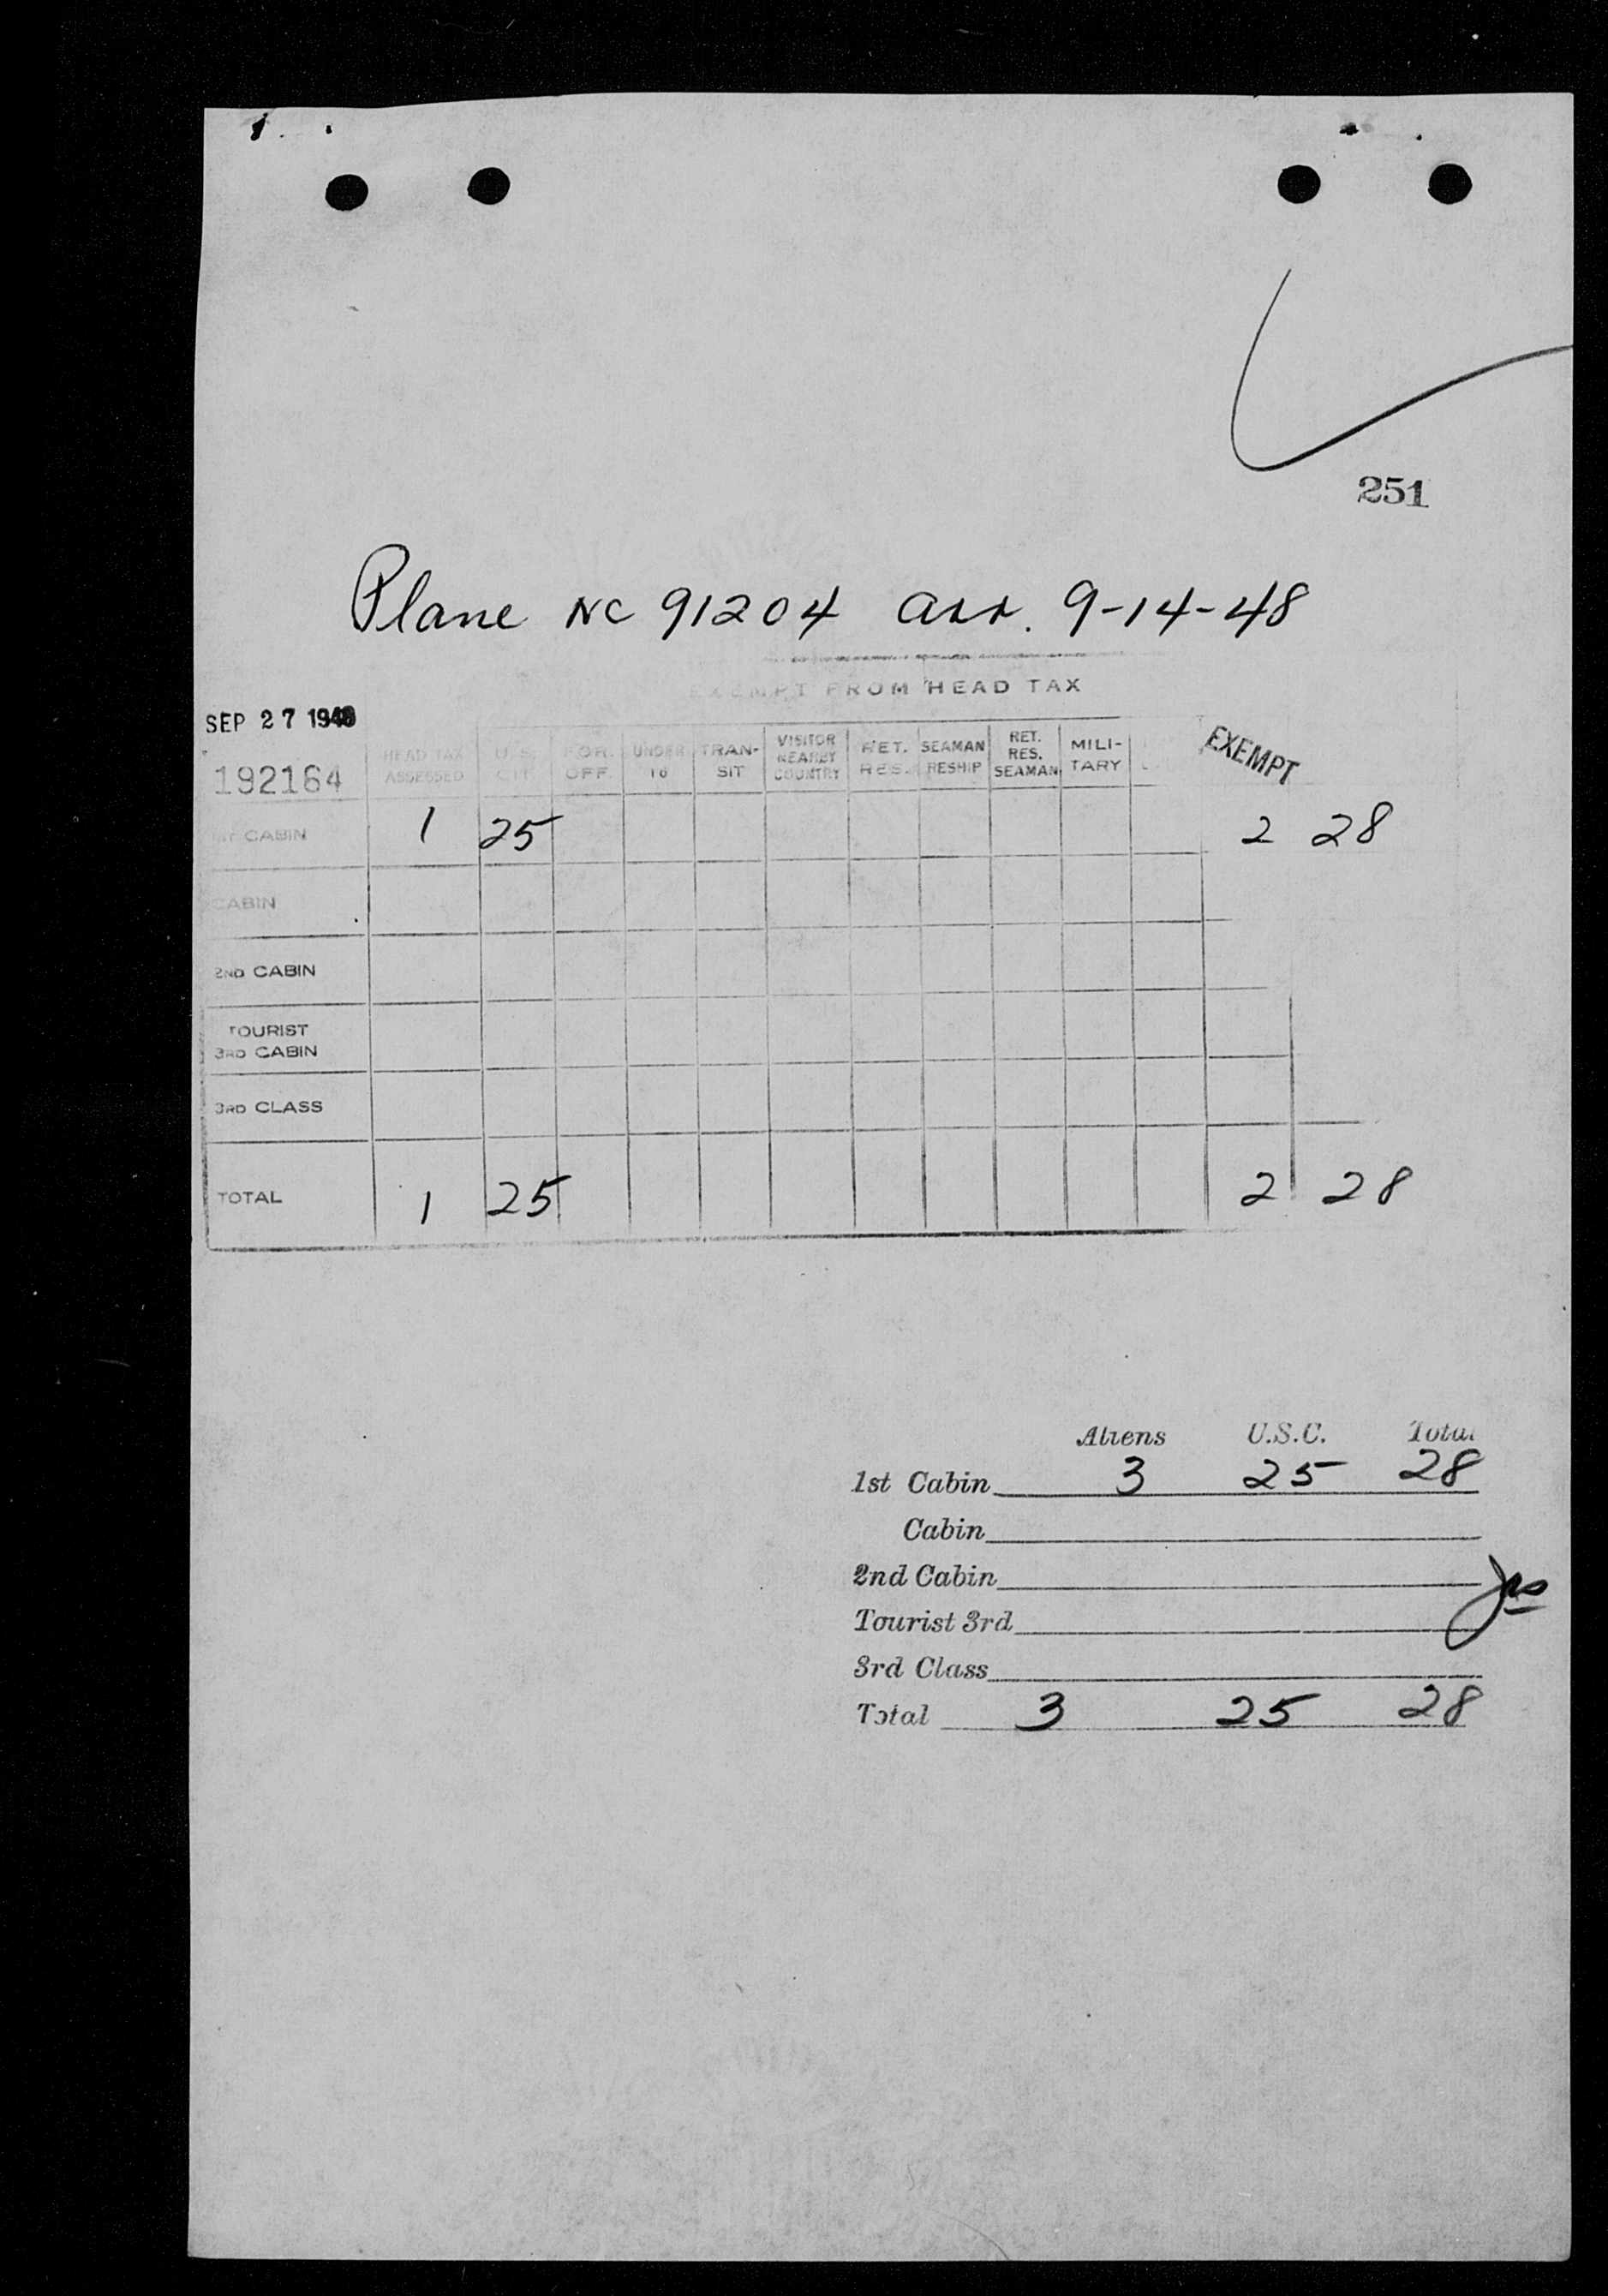 251
Plane NC 91204 arr. 9-14-48
EXEMPT FROM HEAD TAX
SEP 27 1948
192164 HEAD TAX ASSESSED U.S. CIT FOR. OFF. UNDER 16 TRAN-SIT VISITOR NEARBY COUNTRY RET. RES. SEAMAN RESHIP RET. RES. SEAMAN MILI-TARY EXEMPT
CABIN 1 25 2 28
CABIN
2ND CABIN
TOURIST
3RD CABIN
3RD CLASS
TOTAL 1 25 2 28
Aliens U.S.C. Total
1st Cabin 3 25 28
Cabin
2nd Cabin
Tourist 3rd
3rd Class
Total 3 25 28